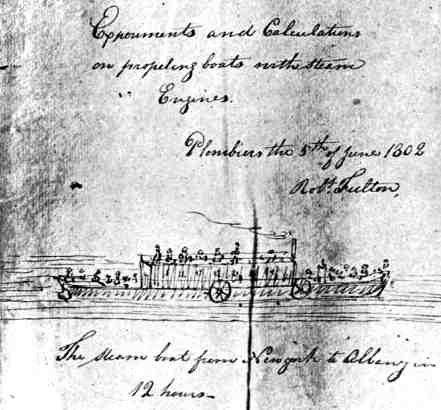 Experiments and Calculations
on propeling boats with steam
Engines.
Plombiers the 5th of June 1802
Robt. Fulton,
The steam boat from New york to Albany in
12 hours—